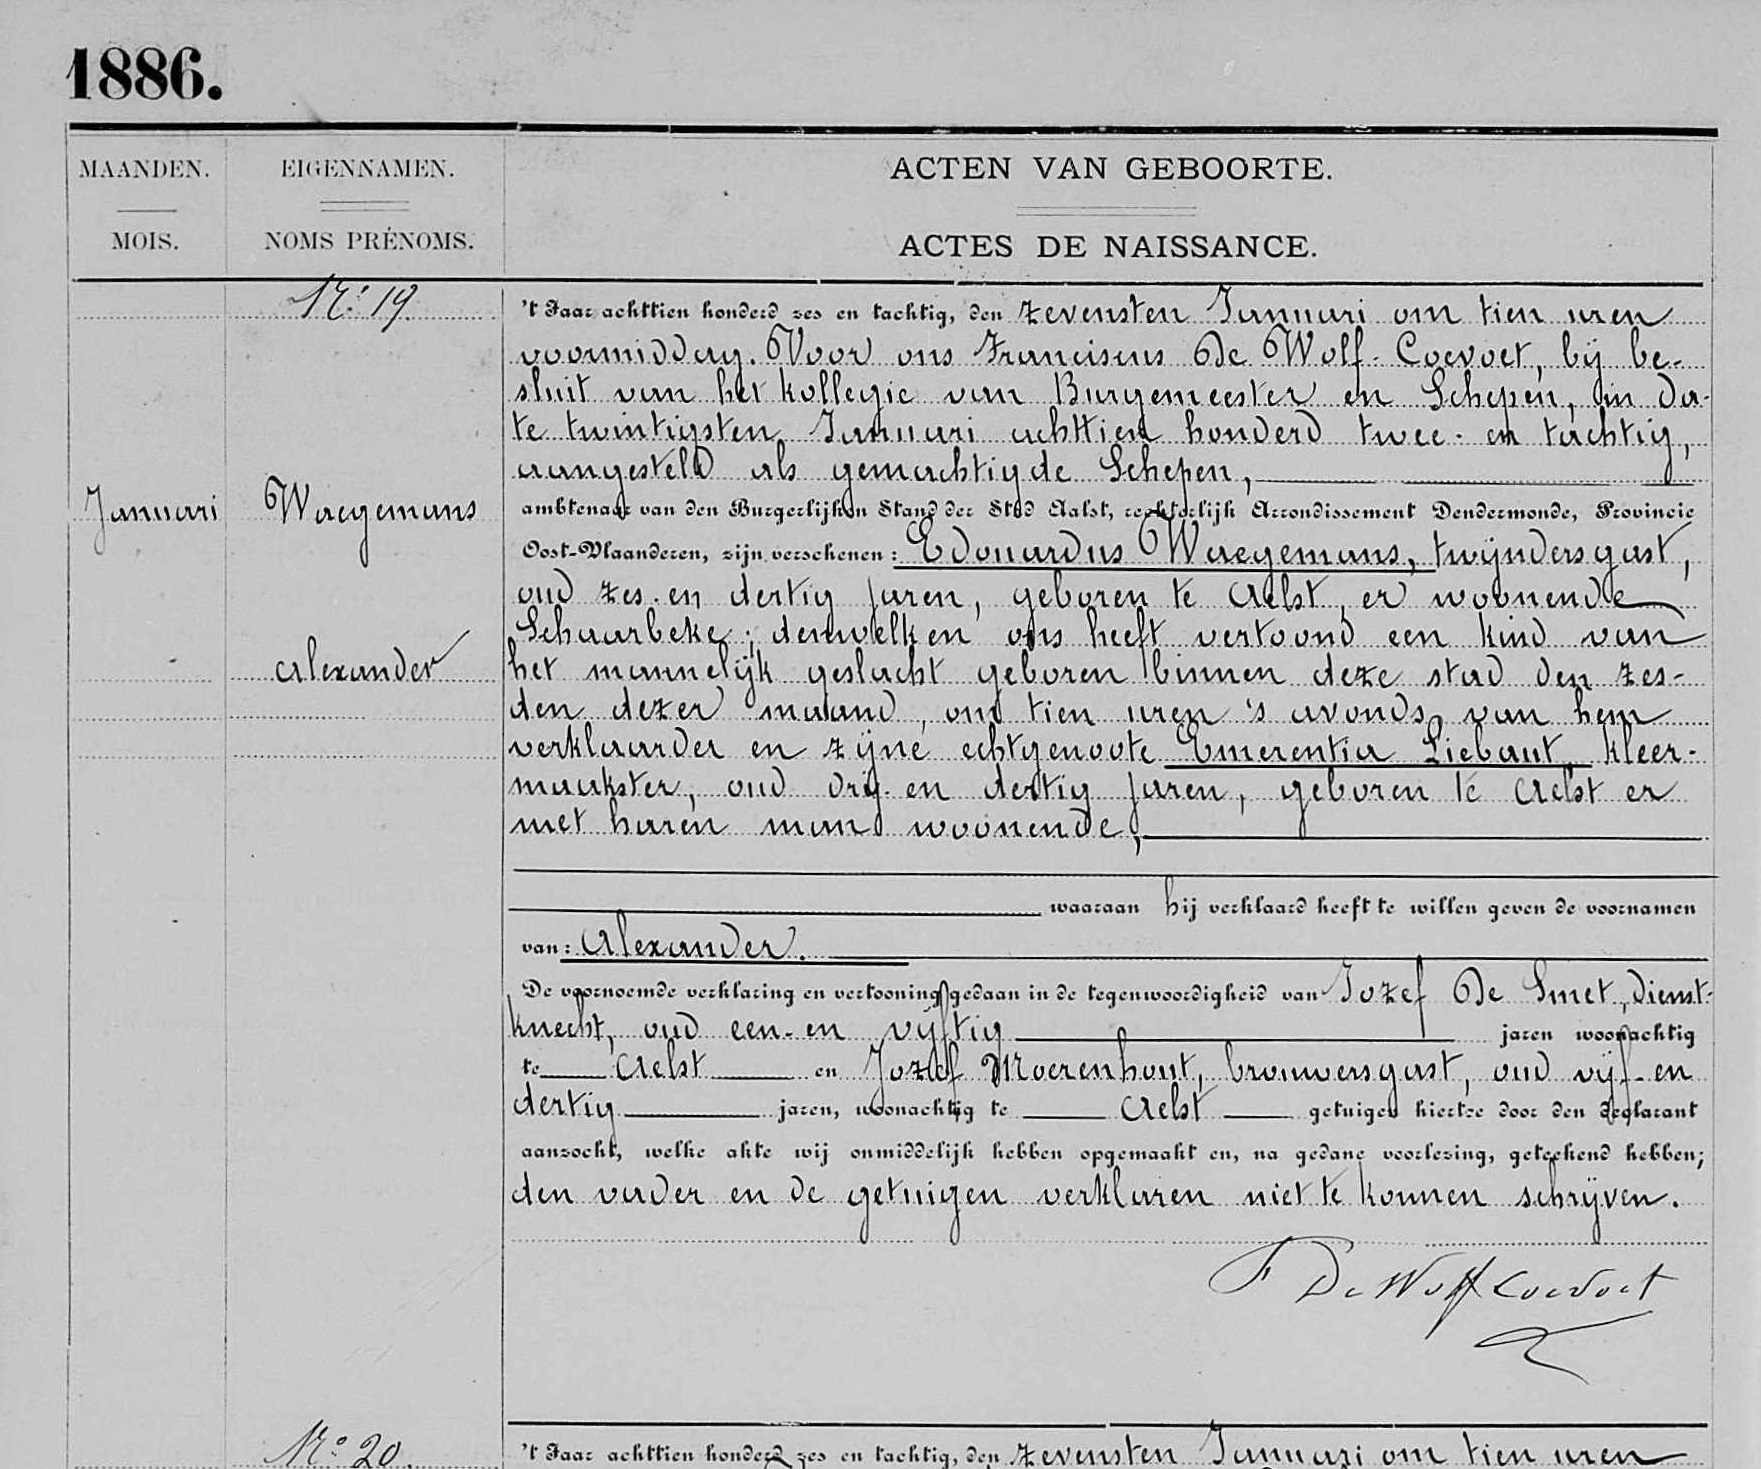 1886.
MAANDEN.
MOIS.
EIGENNAMEN.
NOMS PRÉNOMS.
ACTEN VAN GEBOORTE.
ACTES DE NAISSANCE.
N.º 19.
Januari
Waegemans
Alexander
't Jaar achttien honderd zes en tachtig, den zevensten Januari om tien uren
voormiddag. Voor ons Franciscus De Wolf-Coevoet, bij be-
sluit van het kollegie van Burgemeester en Schepen, in da-
te twintigsten Januari achttien honderd twee-en tachtig,
aangesteld als gemachtigde Schepen,
ambtenaar van den Burgerlijken Stand der Stad Aalst, rechterlijk Arrondissement Dendermonde, Provincie
Oost-Vlaanderen, zijn verschenen: Edouardus Waegemans, twijndersgast,
oud zes-en dertig jaren, geboren te Aelst, er woonende
Schaarbeke; denwelken ons heeft vertoond een kind van
het mannelijk geslacht geboren binnen deze stad den zes-
den dezer maand, om tien uren 's avonds van hem
verklaarder en zijne echtgenoote Emerentia Liebaut, kleer-
maakster, oud drij-en dertig jaren, geboren te Aelst er
met haren man woonende,
waaraan hij verklaard heeft te willen geven de voornamen
van: Alexander.
De voornoemde verklaring en vertooning gedaan in de tegenwoordigheid van Jozef De Smet, dienst-
knecht, oud een-en vijftig jaren woonachtig
te Aelst en Jozef Moerenhout, brouwersgast, oud vijf-en
dertig jaren, woonachtig te Aelst getuigen hiertoe door den declarant
aanzocht, welke akte wij onmiddelijk hebben opgemaakt en, na gedane voorlezing, geteekend hebben;
den vader en de getuigen verklaren niet te konnen schrijven.
F De Wolf Coevoet
N.º 20.
't Jaar achttien honderd zes en tachtig, den zevensten Januari om tien uren